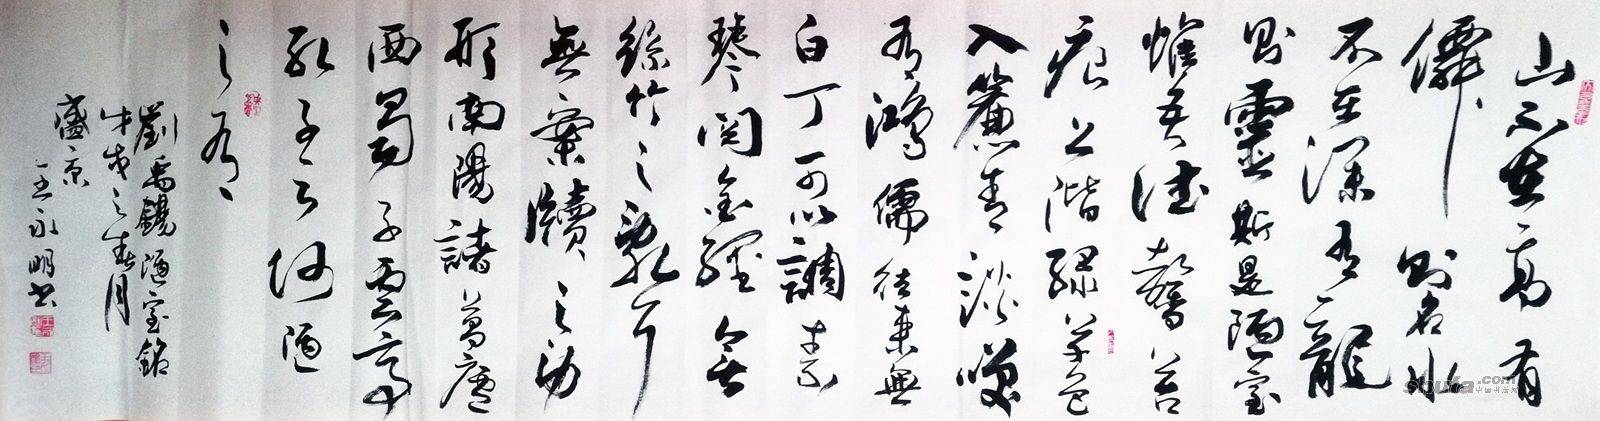 山不在高有
僊則名水
不在深有龍
則靈斯是陋室
惟吾德馨苔
痕上階綠草色
入簾青談笑
有鴻儒往來無
白丁可以調素
琴閱金經無
絲竹之亂耳
無案牘之勞
形南陽諸葛廬
西蜀子雲亭
孔子云何陋
之有
劉禹錫陋室銘
牛歲之春月
盛京
王永明書
shufa.com